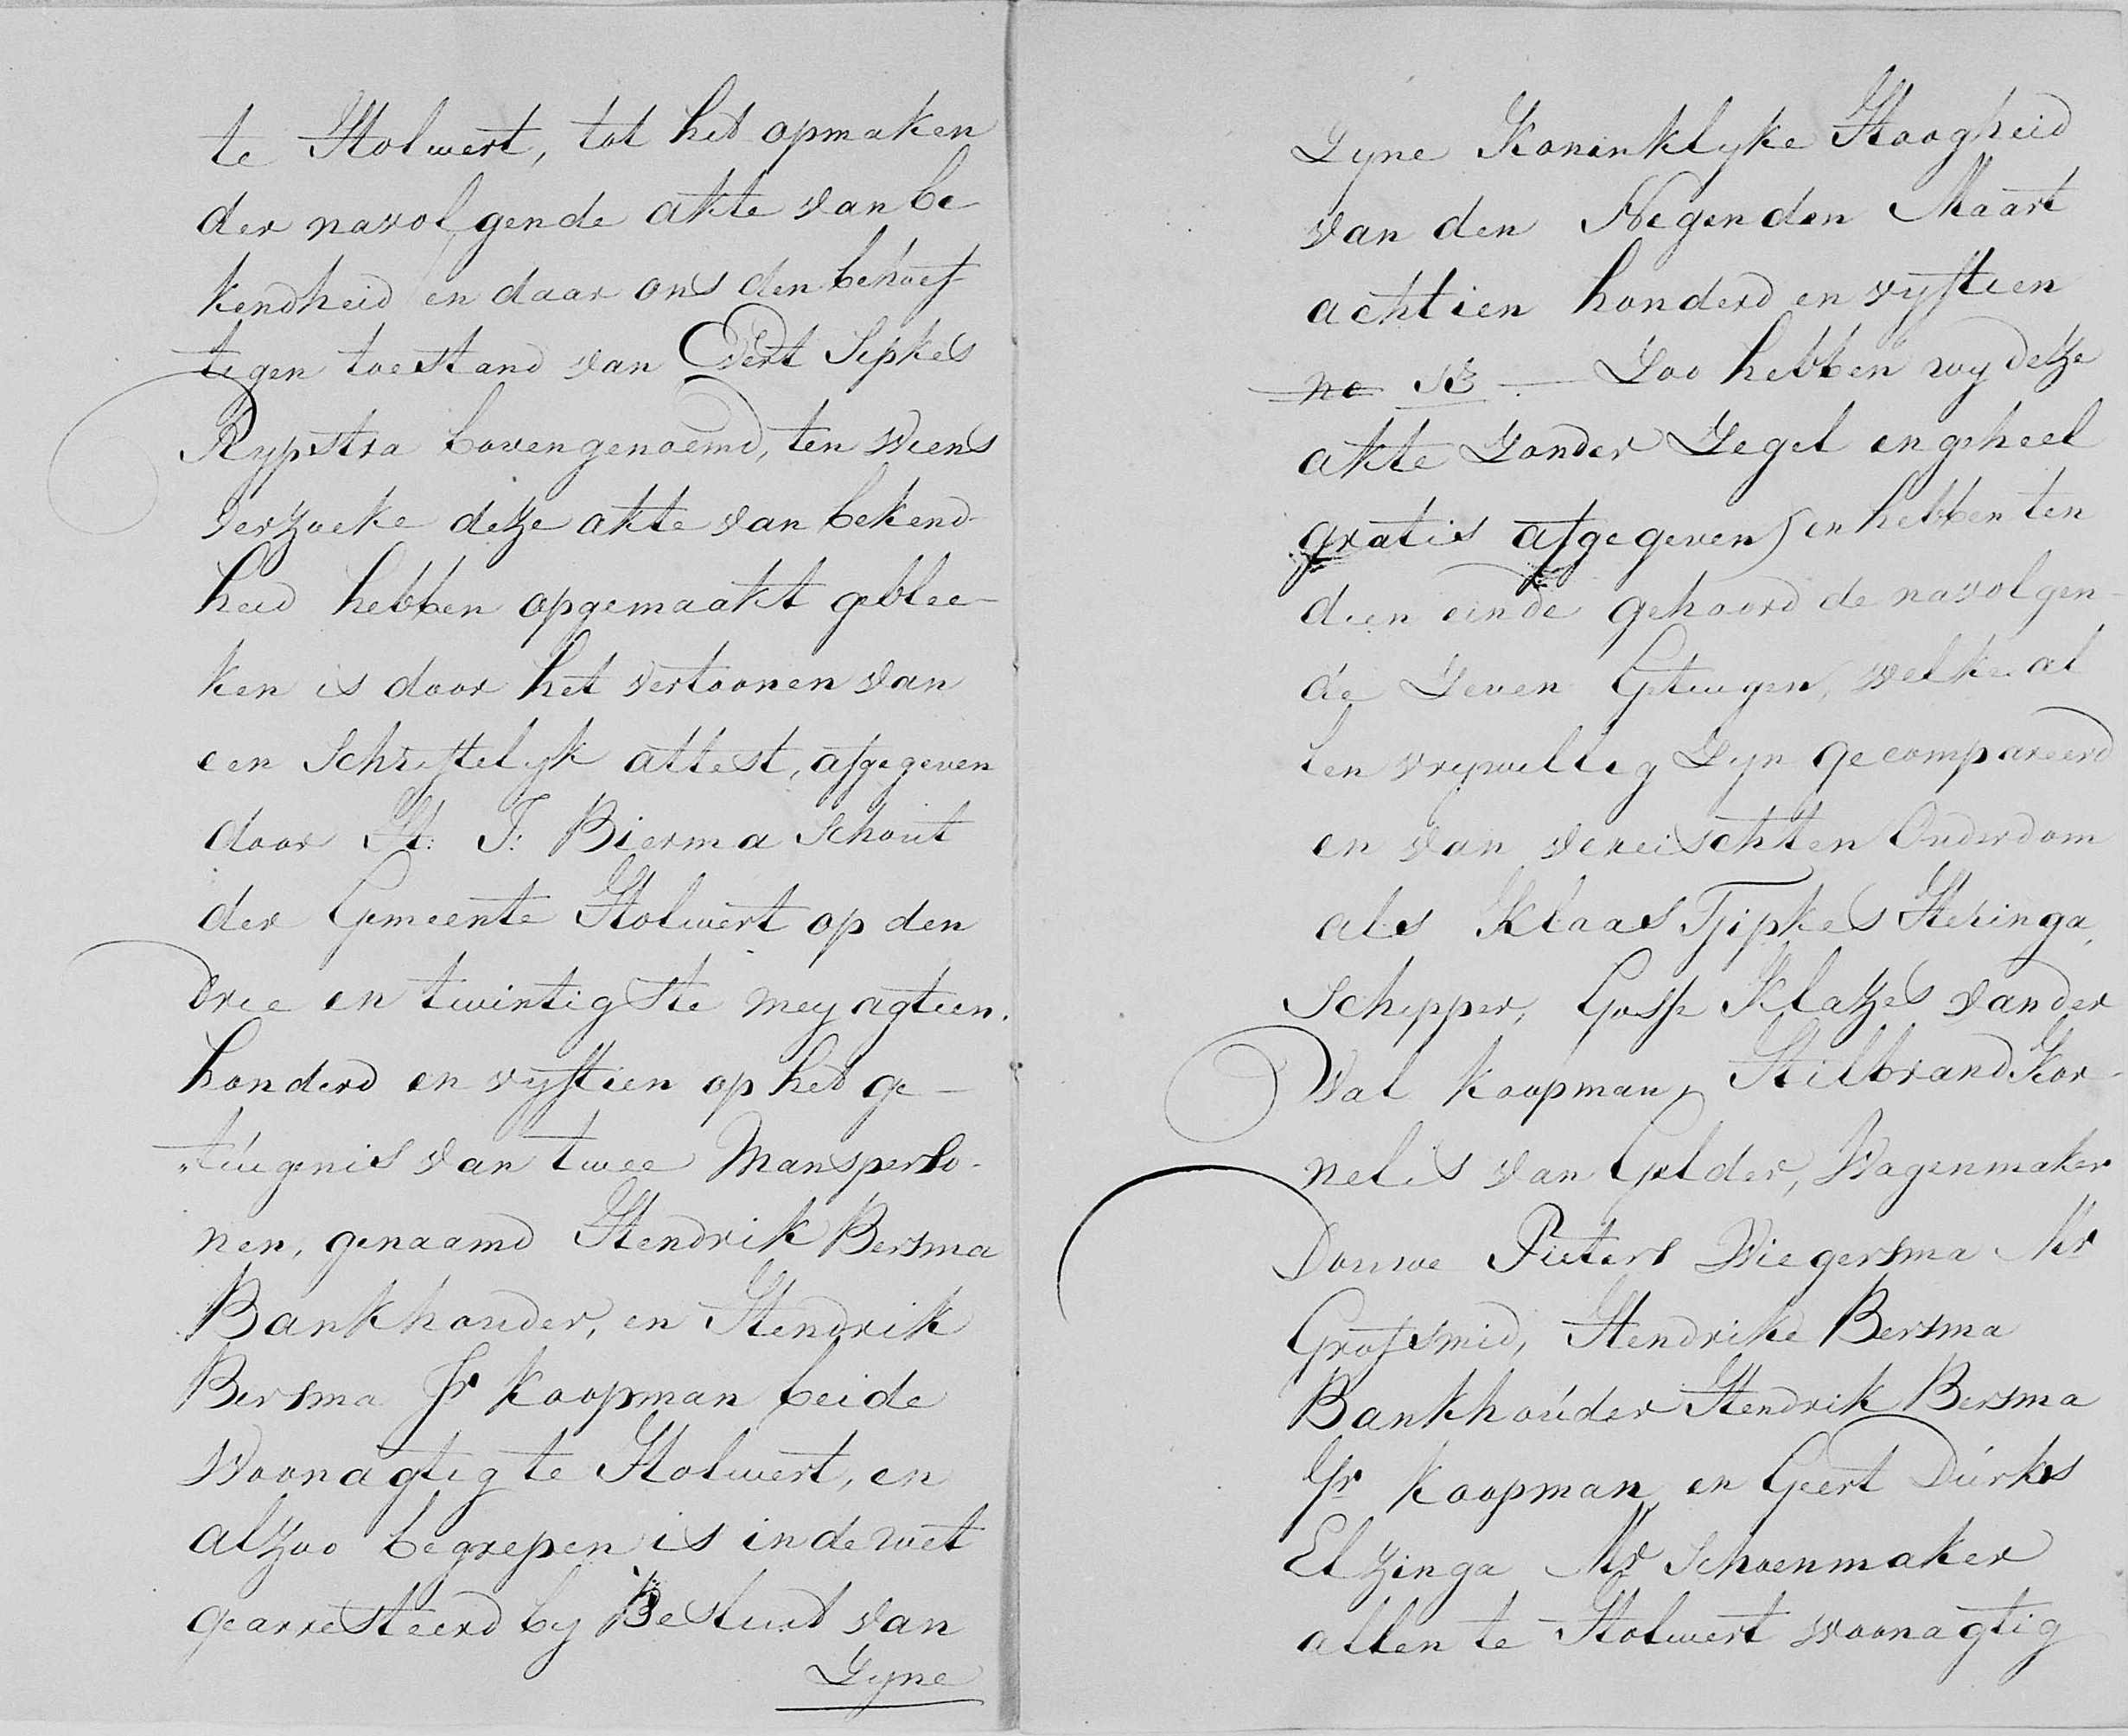 te Holwert, tot het opmaken
der navolgende akte van be
kendheid en daar ons den behoef-
tigen toestand van Evert Sipkes
Rypstra bovengenoemd, ten wiens
verzoeke deze akte van bekend-
heid hebben opgemaakt geblee-
ken is door het vertoonen van
een Schriftelyk attest, afgegeven
door H: T: Bierma Schout
der Gemeente Holwert op den
drie en twintigste mey agtien.
honderd en vyftien op het ge-
"túigenis van twee Manspersо-
nen, genaamd Hendrik Bersma
Bankhouder, en Hendrik
Bersma Jr Koopman beide
Woonagtig te Holwert, en
alzoo begrepen is in de wet
gearresteerd by Besluit van
Zyne
Zyne Koninklyke Hoogheid
van den Negenden Maart
achtien honderd en vyftien
no Zoo hebben wy deze
akte Zonder Zegel en geheel
gratis afgegeven) en hebben ten
dien einde gehoord de navolgen-
de Zeven Getuigen, welke al
len vrywillig Zyn gecompareerd
en van vereischten Ouderdom
als Klaas Tjipkes Heringa,
Schipper, Gosse Klazes vander
Wal koopman, Hilbrand Kor-
nelis van Gelder, Wagenmaker
Douwe Pieters Wiegersma Mr
Grofsmid, Hendrik Bersma
Bankhoúder Hendrik Bersma
Jr Koopman en Geert Dúrks
Elzinga Mr Schoenmaker
allen te Holwert woonagtig